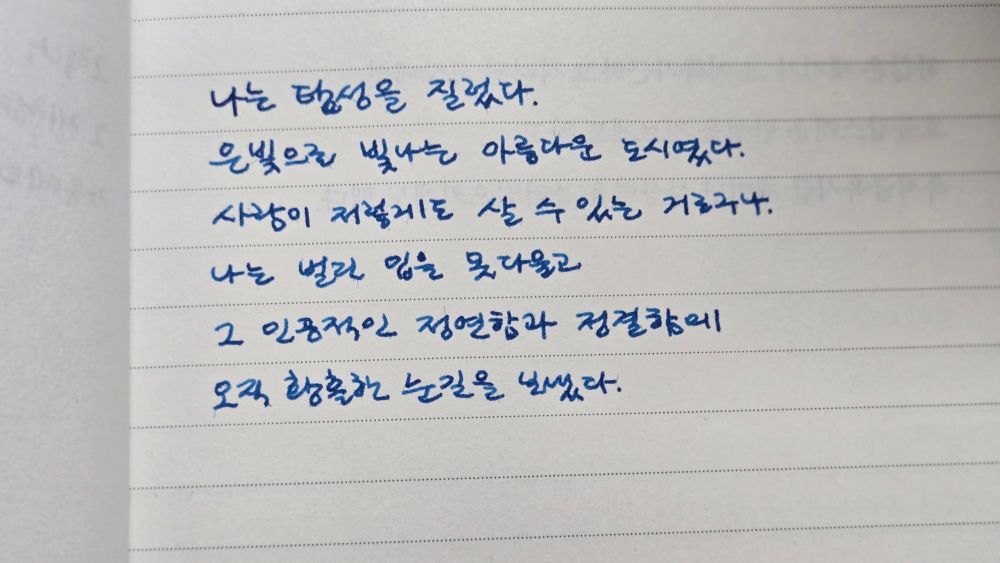 나는 탐성을 질렀다.
은빛으로 빛나는 아름다운 도시였다.
사람이 저렇게도 살 수 있는 거로구나.
나는 벌린 입을 못다물고
그 인공적인 정연함과 정결함에
오직 황홀한 눈길을 보냈다.